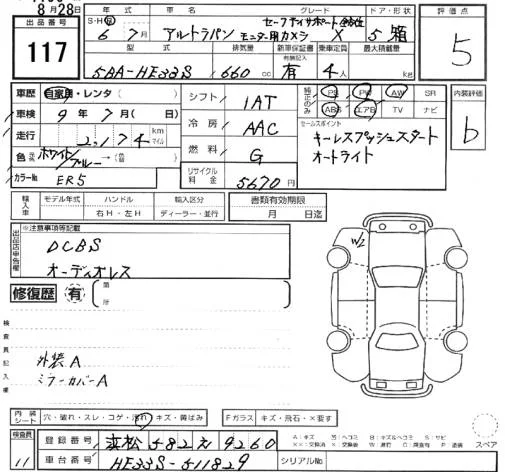 8月28日
出品番号 117
年式 車名 グレード ドア・形状 評価点
S・H・R 6年 7月 アルトラパン セーフティサポート全方位モニター用カメラ X 5 箱 5
型式 排気量 新車保証書 乗車定員 最大積載量
有無記入
5BA-HE33S 660 cc 有 4人 kg
車歴 自家用・レンタ ( )
車検 9年 7月( 日)
走行 2,174 km マイル
色 ホワイト/ブルー → (色替)
カラーNo ER5
シフト 1AT
冷房 AAC
燃料 G
リサイクル料金 5670円
純正のみ PS PW AW SR
ABS エアB TV ナビ
内装評価 b
セールスポイント
キーレスプッシュスタート
オートライト
輸入車 モデル年式 ハンドル 輸入区分 書類有効期限
右H・左H ディーラー・並行 月 日迄
出品店申告欄 ※注意事項等記載
DCBS
オーディオレス
修復歴 有 箇所
W2
検査員記入欄
外装A
ミラーカバーA
内装シート 穴・破れ・スレ・コゲ・汚れ・キズ・黄ばみ Fガラス キズ・飛石・×要す
検査員 11
登録番号 浜松 582 え 9260
車台番号 HE33S-511829 シリアルNo
スペア